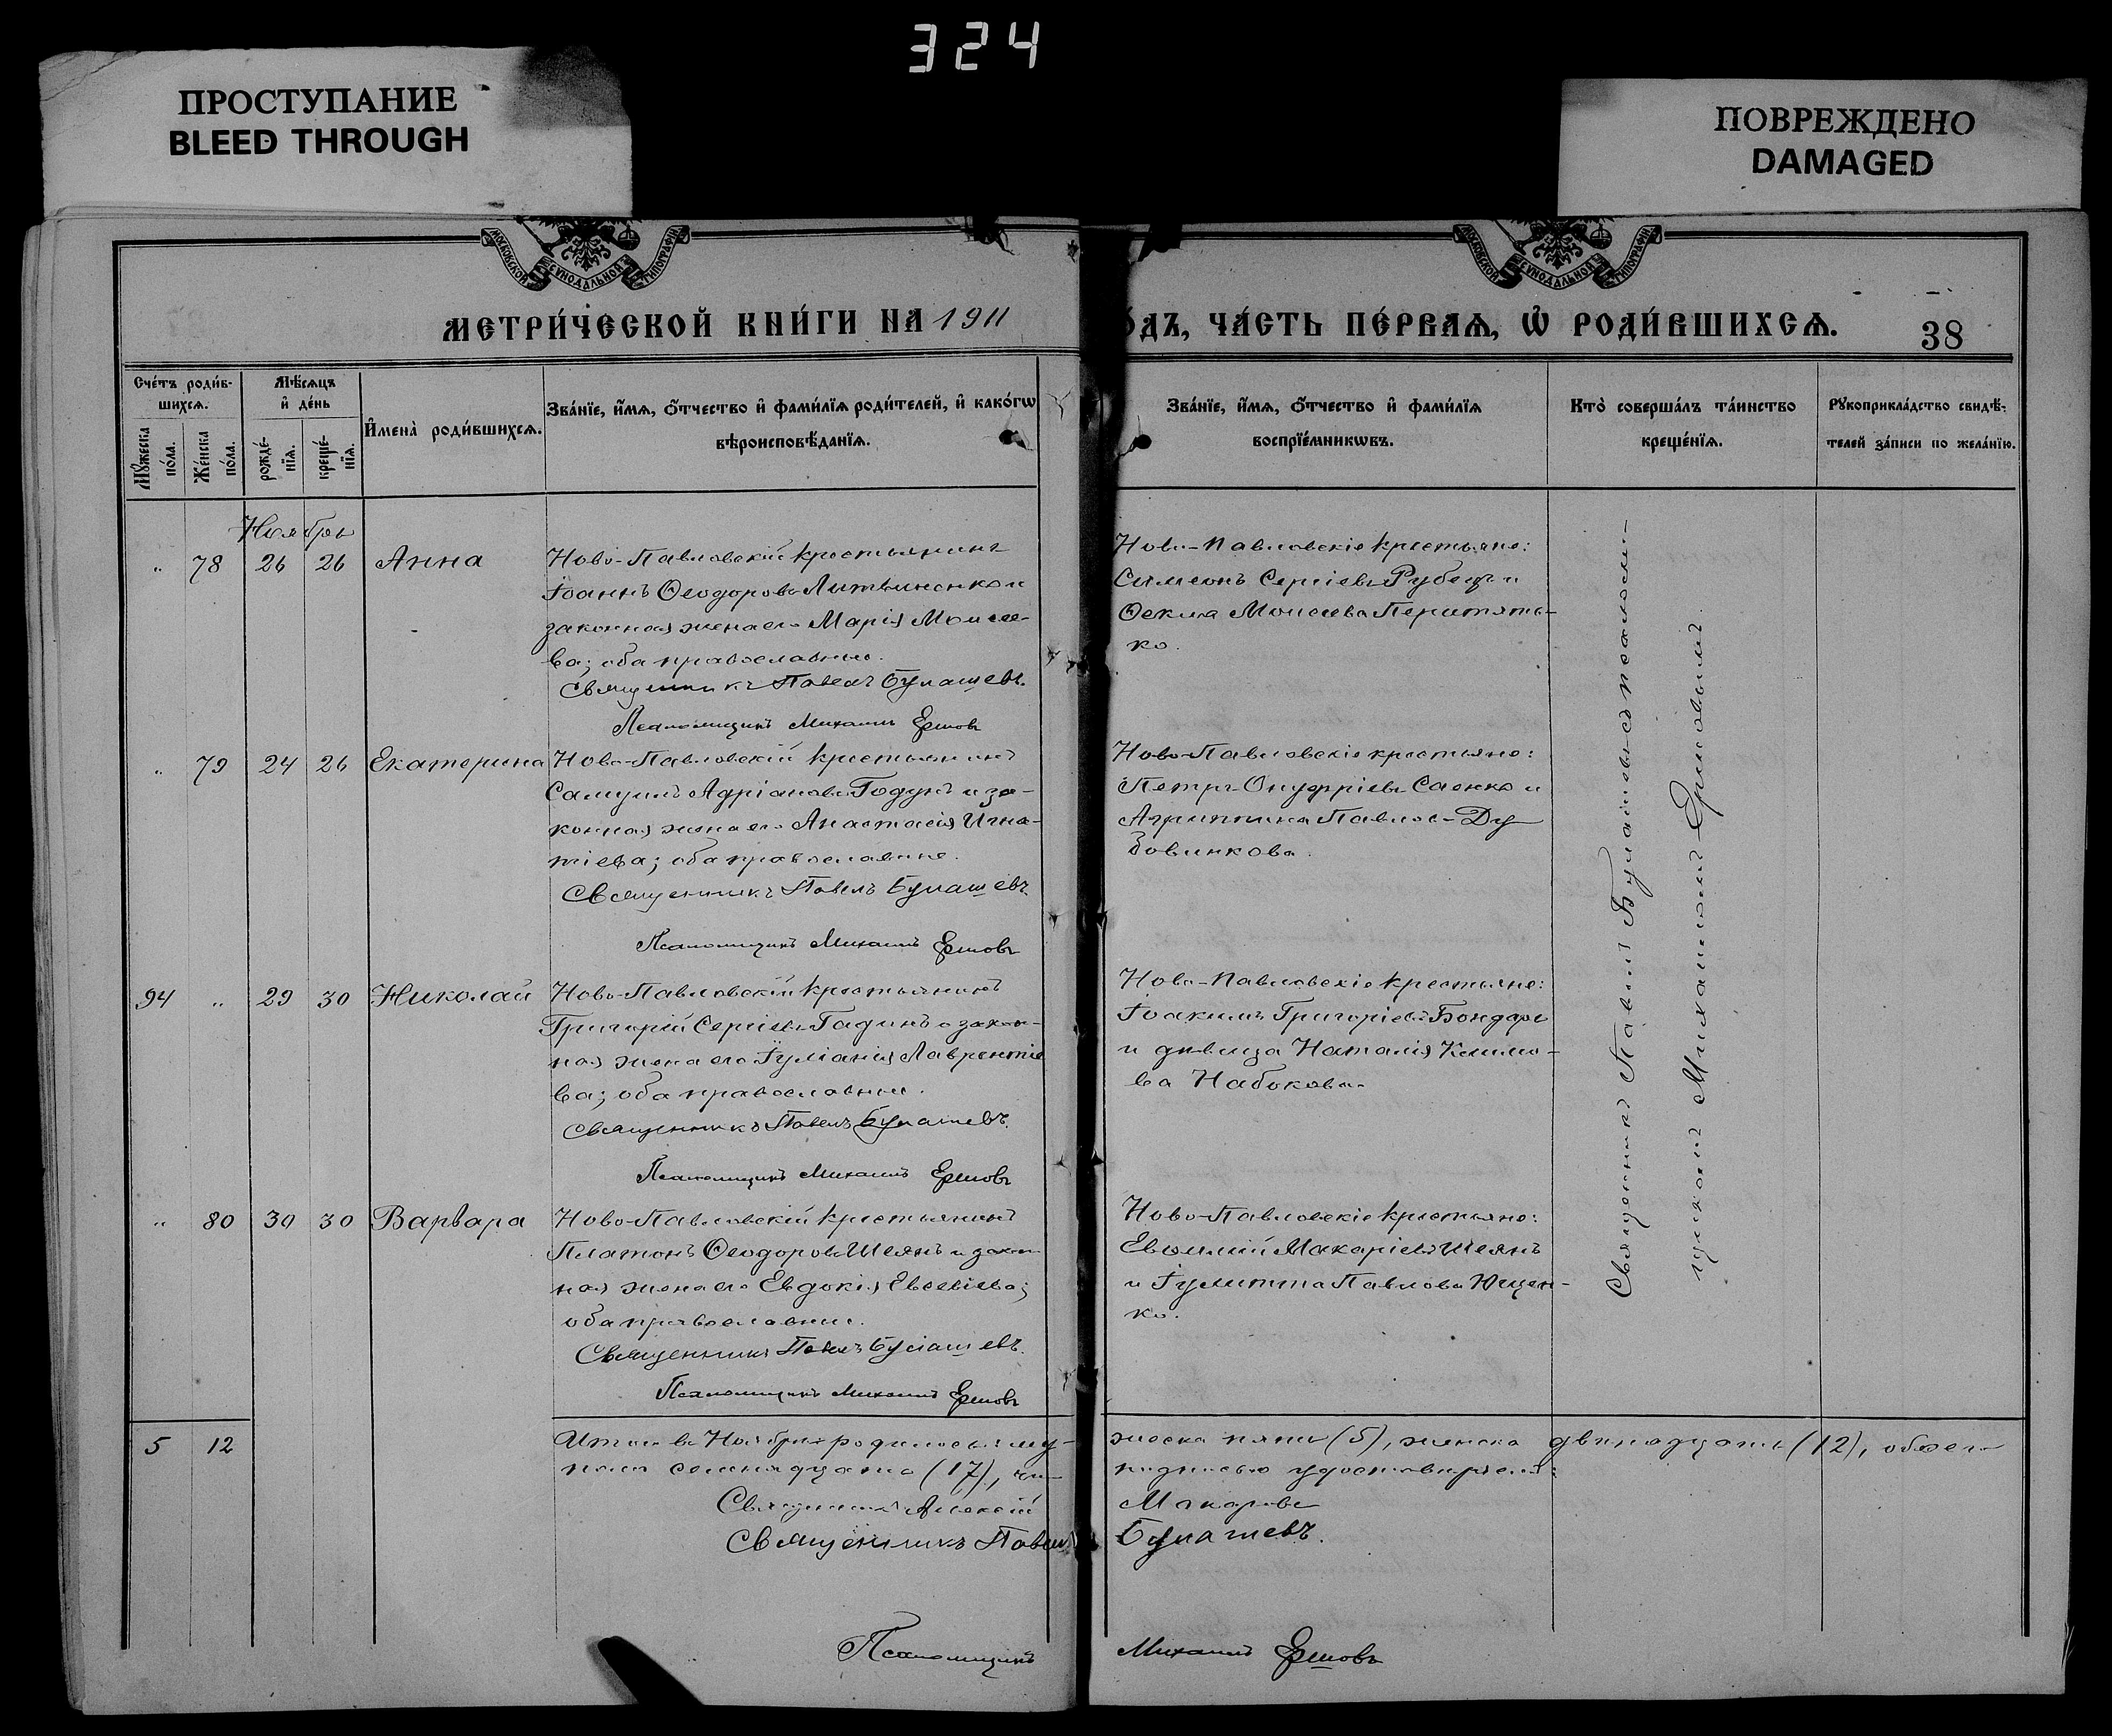 324
ПРОСТУПАНИЕ
BLEED THROUGH
ПОВРЕЖДЕНО
DAMAGED
МОСКОВСКОЙ СѴНОДАЛЬНОЙ ТИПОГРАФІИ
МОСКОВСКОЙ СѴНОДАЛЬНОЙ ТИПОГРАФІИ
МЕТРИ́ЧЕСКОЙ КНИ́ГИ НА 1911
О́ДЪ, ЧА́СТЬ ПЕ́РВАѦ, Ѡ҆ РОДИ́ВШИХСѦ.
38
Сче́тъ роди́в-
шихсѧ.
Мꙋ́жеска по́ла.
Же́нска по́ла.
Мѣ́сѧцъ
и҆ де́нь
рожде́-
нїѧ.
креще́-
нїѧ.
И҆мена̀ роди́вшихсѧ.
Зва́нїе, и҆́мѧ, ѻ҆́тчество и҆ фами́лїѧ роди́телей, и҆ како́гѡ
вѣроисповѣ́данїѧ.
Зва́нїе, и҆́мѧ, ѻ҆́тчество и҆ фами́лїѧ
воспрїе́мникѡвъ.
Кто̀ соверша́лъ та́инство
креще́нїѧ.
Рꙋкоприкла́дство свидѣ́-
телей за́писи по жела́нїю.
Ноябрь
„ 78 26 26 Анна
Ново-Павловскій крестьянинъ
Іоаннъ Ѳеодоровъ Литвиненко и
законная жена его Марія Моисее-
ва; оба православные.
Священникъ Павелъ Булашевъ.
Псаломщикъ Михаилъ Ершовъ
Ново-Павловскіе крестьяне:
Симеонъ Сергіевъ Рубецъ и
Ѳекла Моисеева Перитять-
ко.
„ 79 24 26 Екатерина
Ново-Павловскій крестьянинъ
Самуилъ Адріановъ Годунъ и за-
конная жена его Анастасія Игна-
тіева; оба православные.
Священникъ Павелъ Булашевъ.
Псаломщикъ Михаилъ Ершовъ
Ново-Павловскіе крестьяне:
Петръ Онуфріевъ Саенко и
Агриппина Павлова Ду-
бовикова.
94 „ 29 30 Николай
Ново-Павловскій крестьянинъ
Григорій Сергіевъ Гадинъ и закон-
ная жена его Іуліанія Лаврентіе
ва; оба православные.
Священникъ Павелъ Булашевъ.
Псаломщикъ Михаилъ Ершовъ
Ново-Павловскіе крестьяне:
Іоакимъ Григоріевъ Бондарь
и дѣвица Наталія Климо-
ва Набокова.
„ 80 30 30 Варвара
Ново-Павловскій крестьянинъ
Платонъ Ѳеодоровъ Шеянъ и закон
ная жена его Евдокія Евсевіева;
оба православные.
Священникъ Павелъ Булашевъ.
Псаломщикъ Михаилъ Ершовъ
Ново-Павловскіе крестьяне:
Евфимій Макаріевъ Шеянъ
и Іулитта Павлова Ющен-
ко.
Священникъ Павелъ Булашевъ съ псалом-
щикомъ Михаиломъ Ершовымъ.
5 12
Итого въ Ноябрѣ родилось: му-
жеска пять (5), женска двѣнадцать (12), обоего
пола семнадцать (17), что
подписью удостовѣряемъ:
Священникъ Алексій
Макаровъ
Священникъ Павелъ
Булашевъ.
Псаломщикъ
Михаилъ Ершовъ